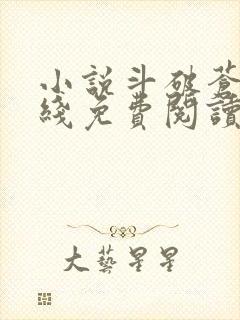 小說斗破蒼
綫免費閱讀
大藝星星